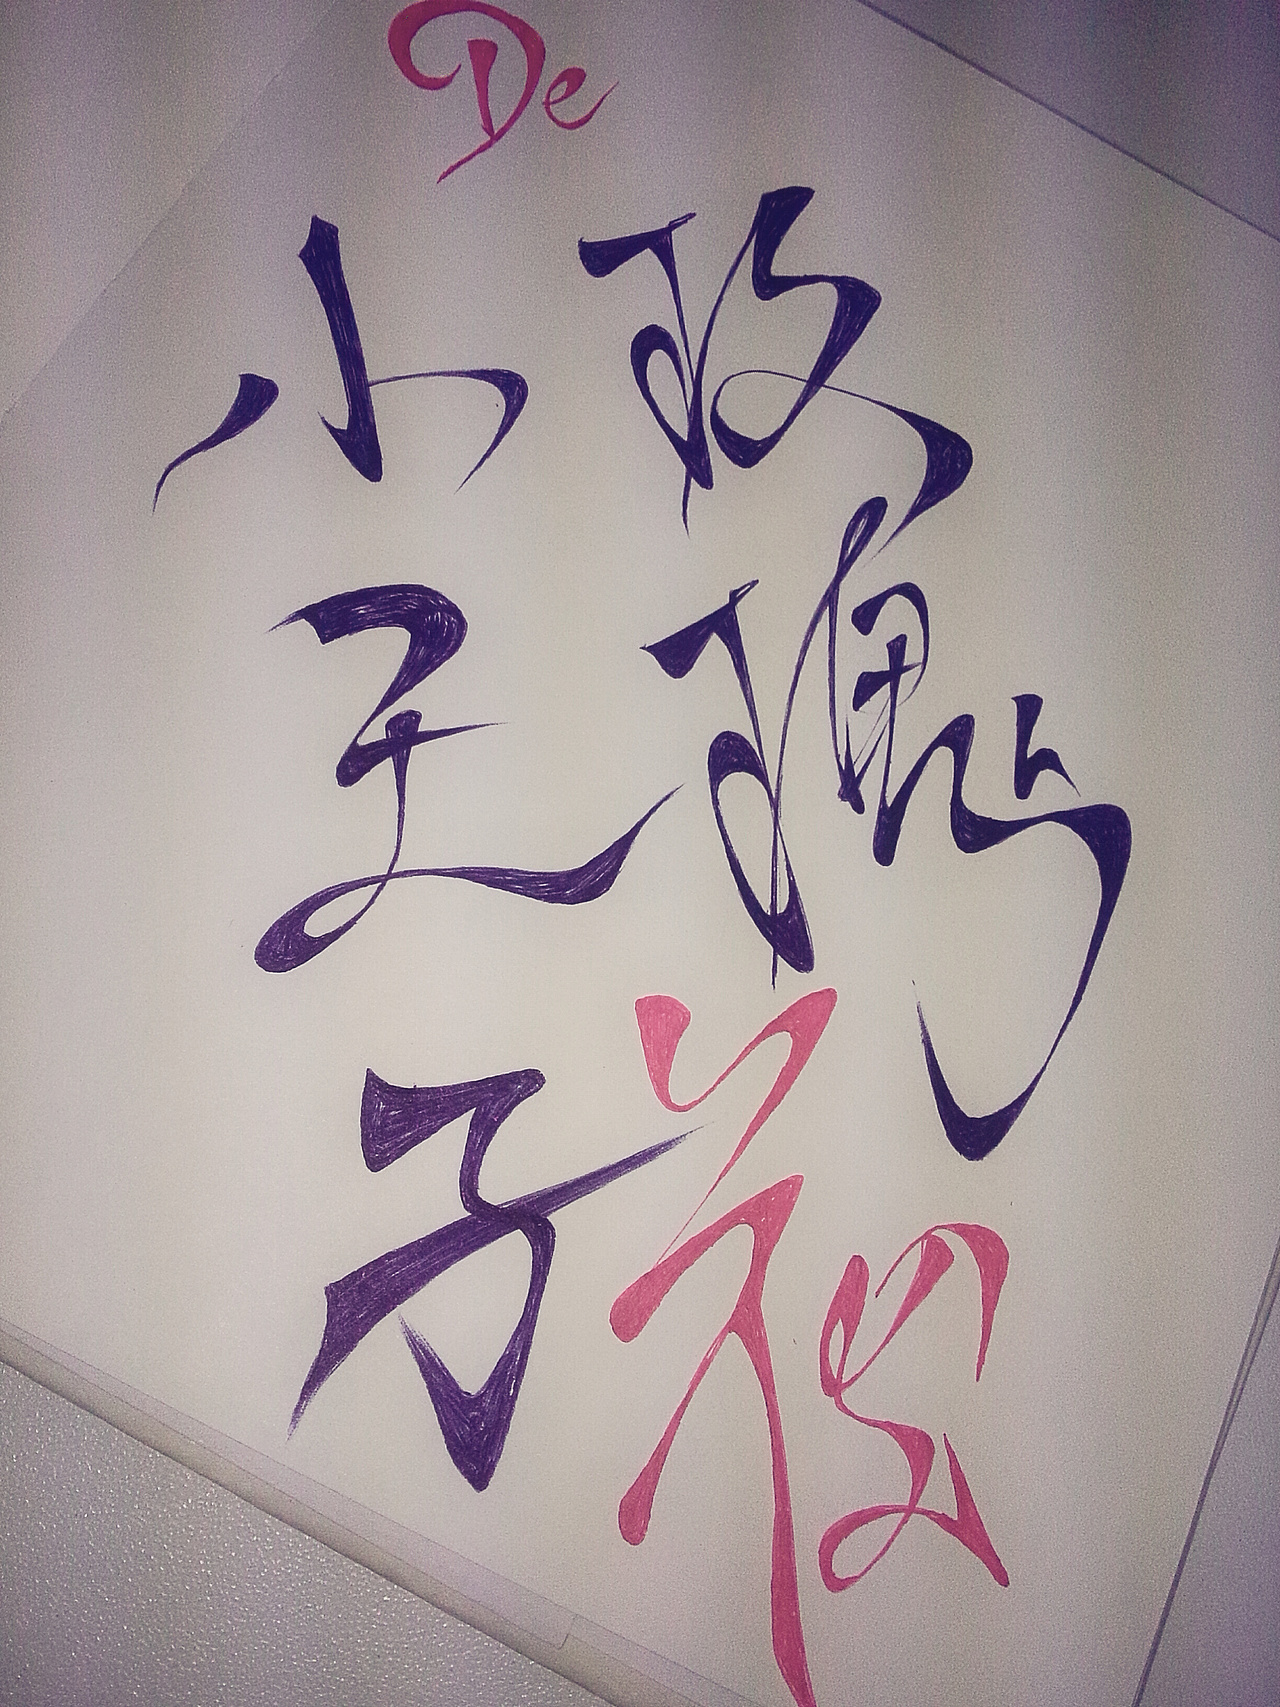 De
小王子
玫瑰